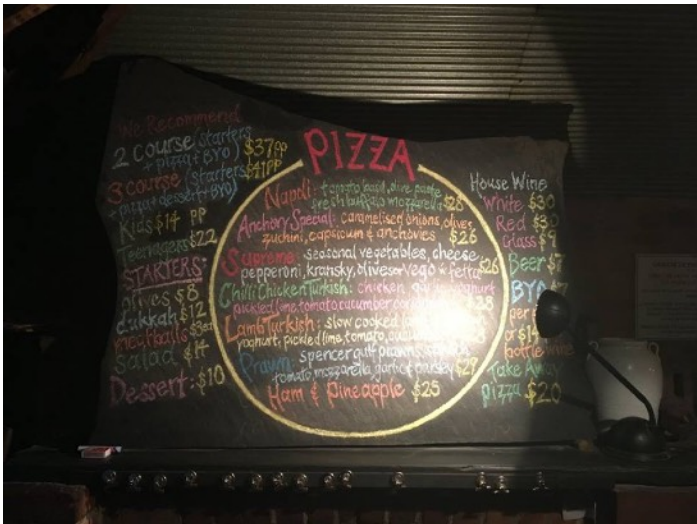 We Recommend
2 course (starters
+ pizza + BYO) $37pp
3 course (starters $41PP
+ pizza + dessert + BYO)
Kids $14 PP
Teenagers $22
STARTERS:
olives $8
dukkah $12
meatballs $3ea
Salad $14
Dessert: $10
PIZZA
Napoli: tomato basil, olive paste
fresh buffalo mozzarella $28
Anchovy Special: caramelised onions, olives,
zuchini, capsicum & anchovies $26
Supreme: seasonal vegetables, cheese
pepperoni, kransky, olives or vego & fetta $26
Chilli Chicken Turkish: chicken, yoghurt
pickled lime, tomato, cucumber
Lamb Turkish: slow cooked
yoghurt, pickled lime, tomato,
Prawn: spencer gulf prawns,
tomato, mozzarella, garlic & parsley $29
Ham & Pineapple $25
House Wine
White $30
Red $30
Glass $9
Beer $7
BYO
per
or $14
bottle wine
Take Away
pizza $20